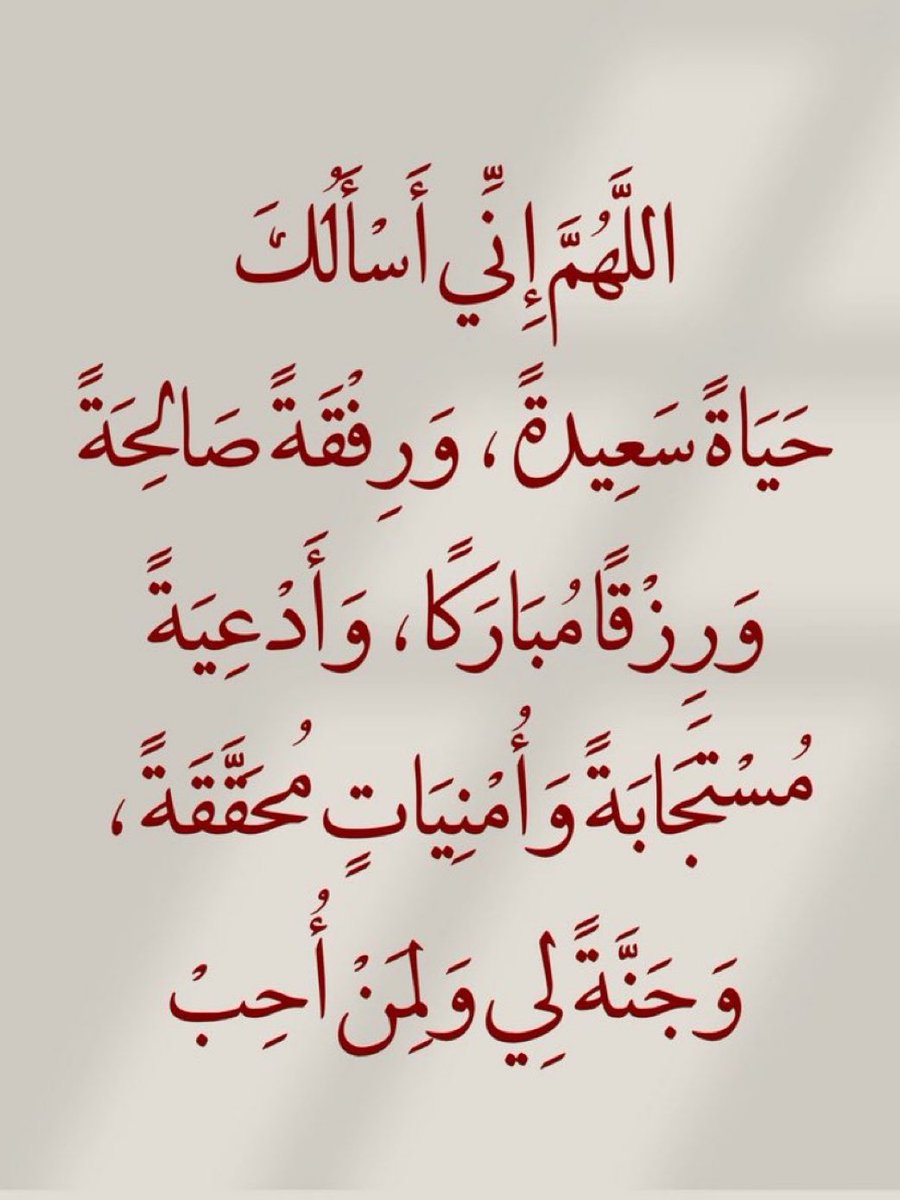 اللَّهُمَّ إِنِّي أَسْأَلُكَ
حَيَاةً سَعِيدةً، وَرِفْقَةً صَالِحَةً
وَرِزْقًا مُبَارَكًا، وَأَدْعِيَةً
مُسْتَجَابَةً وَأُمْنِيَاتٍ مُحَقَّقَةً،
وَجَنَّةً لِي وَلِمَنْ أُحِبْ